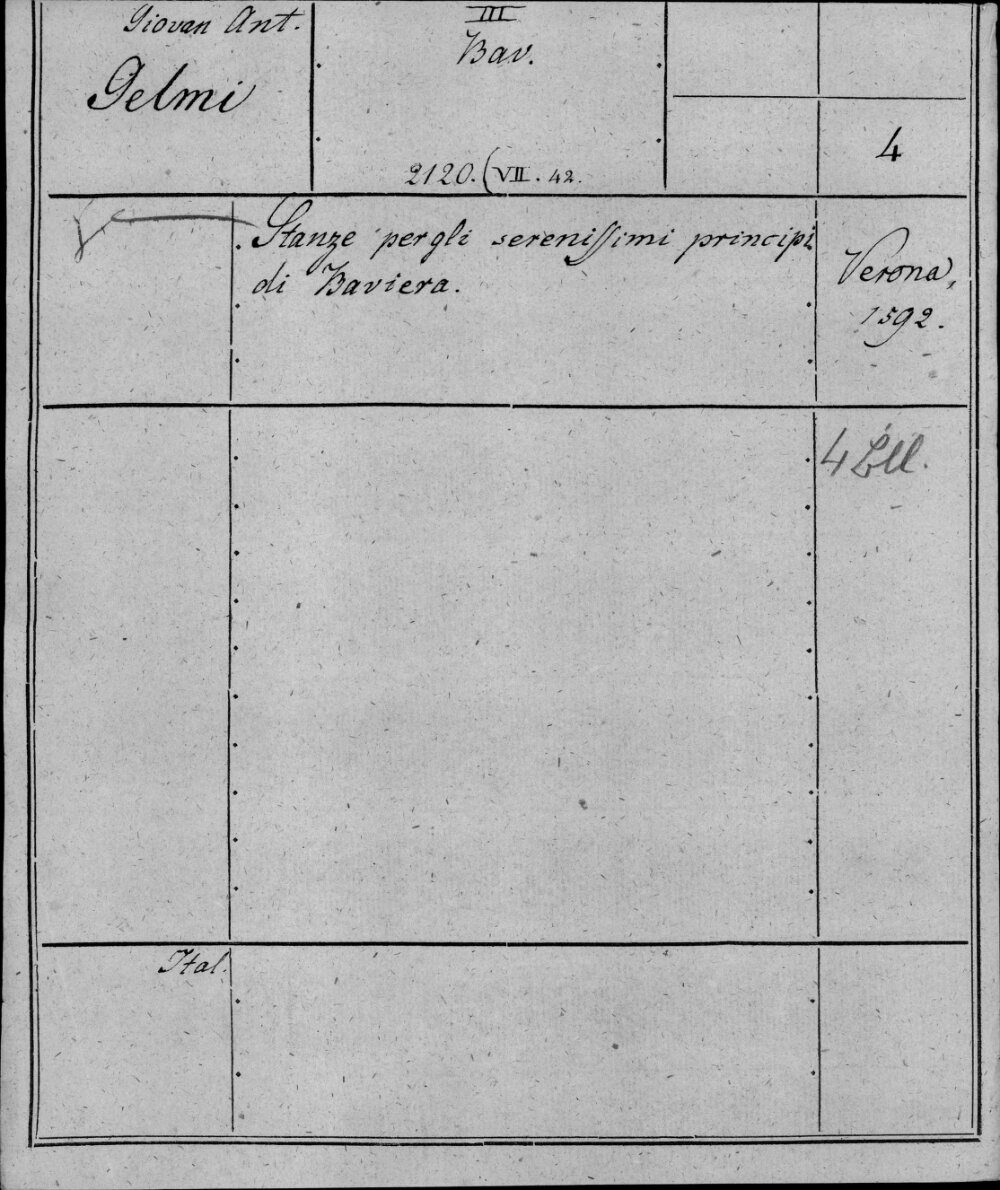 Giovan Ant.
Gelmi
III
Bav.
2120.(VII. 42.
4
Stanze per gli sereniſſimi principi
di Baviera.
Verona,
1592.
4 Bll.
Ital.